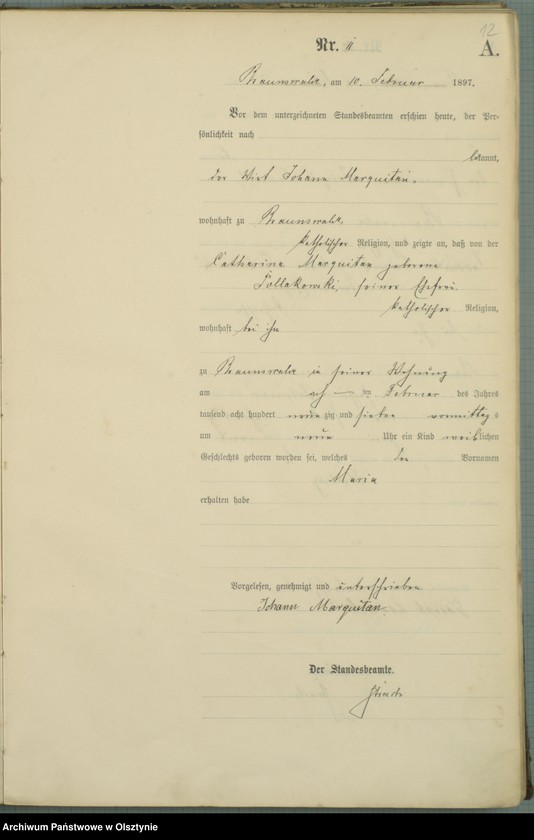 12
Nr. 11
A.
Braunswalde, am 10. Februar 1897.
Vor dem unterzeichneten Standesbeamten erschien heute, der Per-
sönlichkeit nach
bekannt,
der Wirt Johann Marquitan.
wohnhaft zu Braunswalde
katholischer Religion, und zeigte an, daß von der
Catharina Marquitan geborene
Pollakowski, seiner Ehefrau
katholischer Religion,
wohnhaft bei ihm
zu Braunswalde in seiner Wohnung
am ten Februar des Jahres
tausend acht hundert neunzig und sieben vormittags
um neun Uhr ein Kind weiblichen
Geschlechts geboren worden sei, welches den Vornamen
Maria
erhalten habe
Vorgelesen, genehmigt und unterschrieben
Johann Marquitan.
Der Standesbeamte.
Archiwum Państwowe w Olsztynie